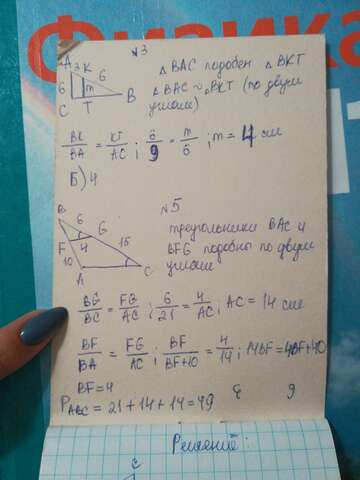 Физика
№3
A 3 K
6 m 6
C T B
△ BAC подобен △ BKT
△ BAC ~ △ BKT (по двум
углам)
BK/BA = KT/AC ; 6/9 = m/6 ; m = 4 см
Б) 4
№5
B 6 G
F 4 15
10 A C
треугольники BAC и
BFG подобны по двум
углам
BG/BC = FG/AC ; 6/21 = 4/AC ; AC = 14 см
BF/BA = FG/AC ; BF/BF+10 = 4/14 ; 14BF = 4BF+40
BF = 4
P ABC = 21 + 14 + 14 = 49
Решение:
C